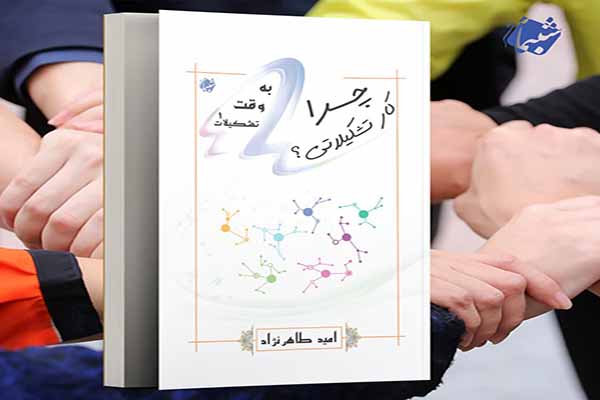 شبنا
چرا
کار تشکیلاتی؟
به
وقت
تشکیلات ۱
امید طاهرنژاد